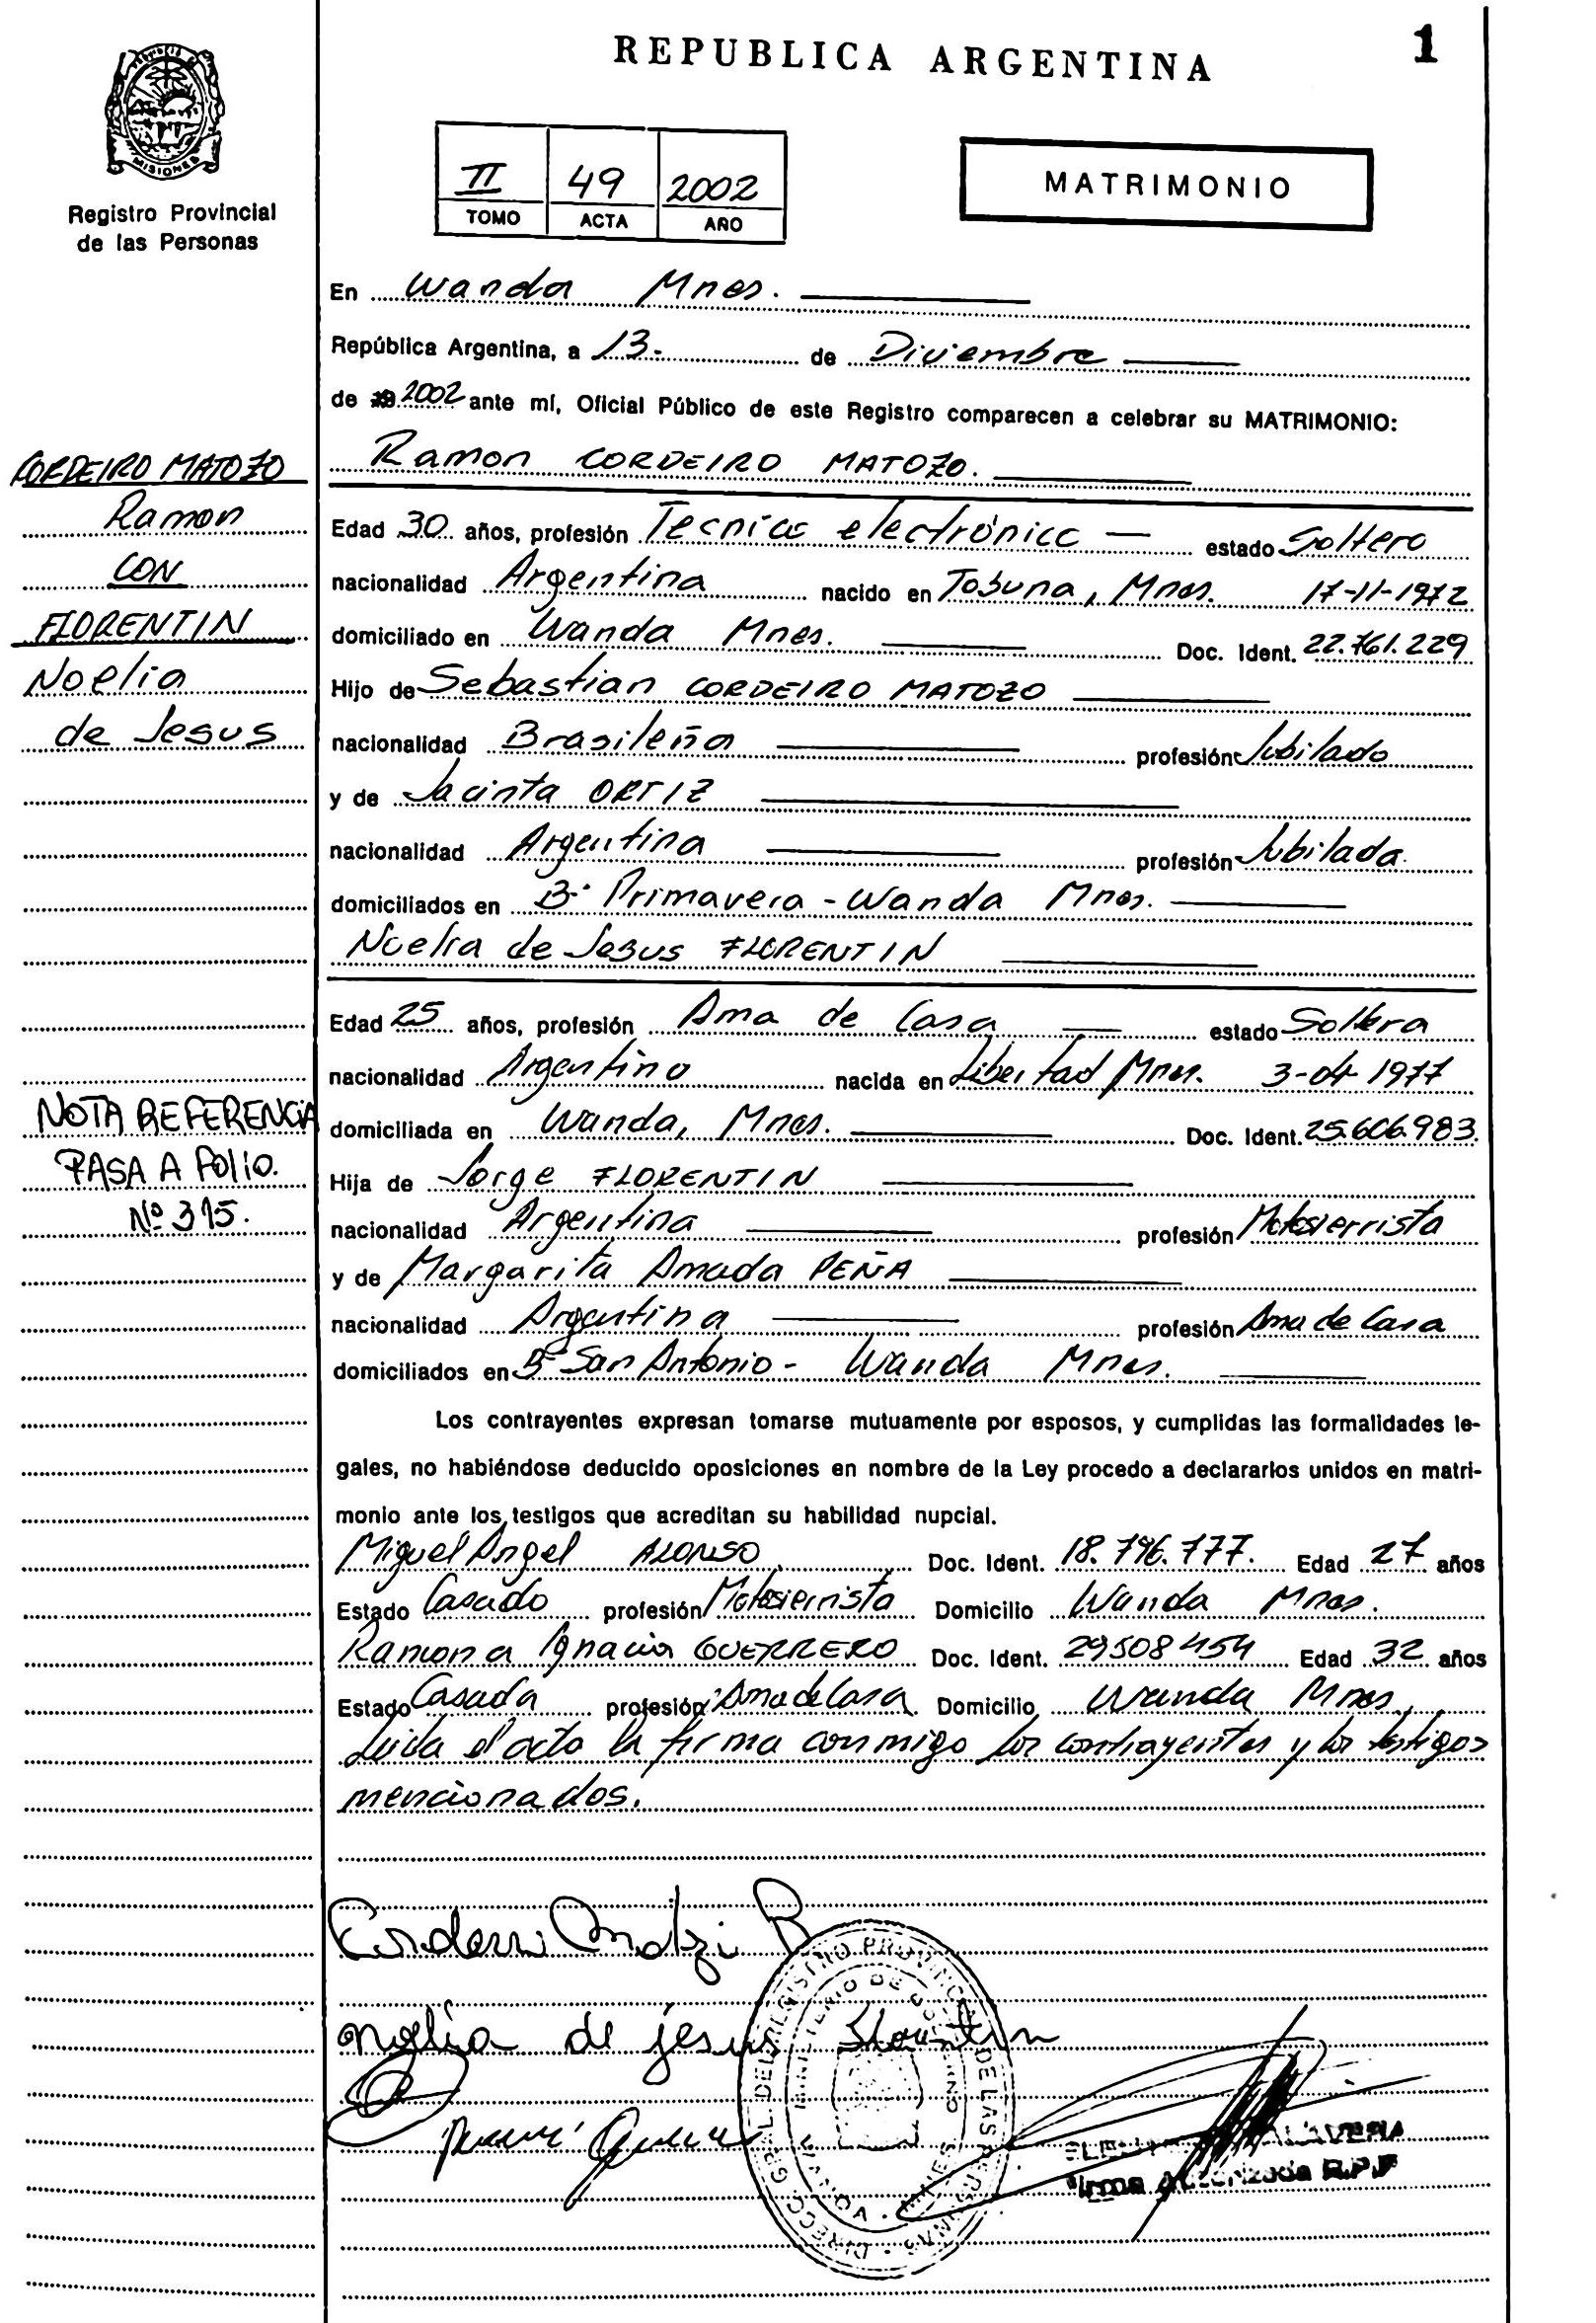 REPUBLICA ARGENTINA
1
MISIONES
Registro Provincial
de las Personas
II 49 2002
TOMO ACTA AÑO
MATRIMONIO
En Wanda Mnes.
República Argentina, a 13. de Diciembre
de 19 2002 ante mí, Oficial Público de este Registro comparecen a celebrar su MATRIMONIO:
Ramon CORDEIRO MATOZO.
Edad 30 años, profesión Tecnico electrónico estado Soltero
nacionalidad Argentina nacido en Tobuna, Mnes. 17-11-1972
domiciliado en Wanda Mnes. Doc. Ident. 22.761.229
Hijo de Sebastian CORDEIRO MATOZO
nacionalidad Brasileña profesión Jubilado
y de Jacinta ORTIZ
nacionalidad Argentina profesión Jubilada.
domiciliados en Bº Primavera - Wanda Mnes.
Noelia de Jesus FLORENTIN
Edad 25 años, profesión Ama de Casa estado Soltera
nacionalidad Argentina nacida en Libertad Mnes. 3-04-1977
domiciliada en Wanda, Mnes. Doc. Ident. 25.606.983.
Hija de Jorge FLORENTIN
nacionalidad Argentina profesión Motosierrista
y de Margarita Amada PEÑA
nacionalidad Argentina profesión Ama de Casa
domiciliados en Bº San Antonio - Wanda Mnes.
Los contrayentes expresan tomarse mutuamente por esposos, y cumplidas las formalidades le-
gales, no habiéndose deducido oposiciones en nombre de la Ley procedo a declararlos unidos en matri-
monio ante los testigos que acreditan su habilidad nupcial.
Miguel Angel ALONSO. Doc. Ident. 18.796.777. Edad 27 años
Estado Casado profesión Motosierrista Domicilio Wanda Mnes.
Ramona Ignacia GUERRERO Doc. Ident. 29508454 Edad 32 años
Estado Casada profesión Ama de Casa Domicilio Wanda Mnes.
Leida el acta la firma conmigo los contrayentes y los testigos
mencionados.
CORDEIRO MATOZO
Ramon
CON
FLORENTIN
Noelia
de Jesus
NOTA REFERENCIA
PASA A FOLIO.
Nº 315.
noelia de jesus Florentin
DIRECC. GRAL. DEL REGISTRO PROVINCIAL DE LAS PERSONAS
MINISTERIO DE
Firma Autorizada R.P.P